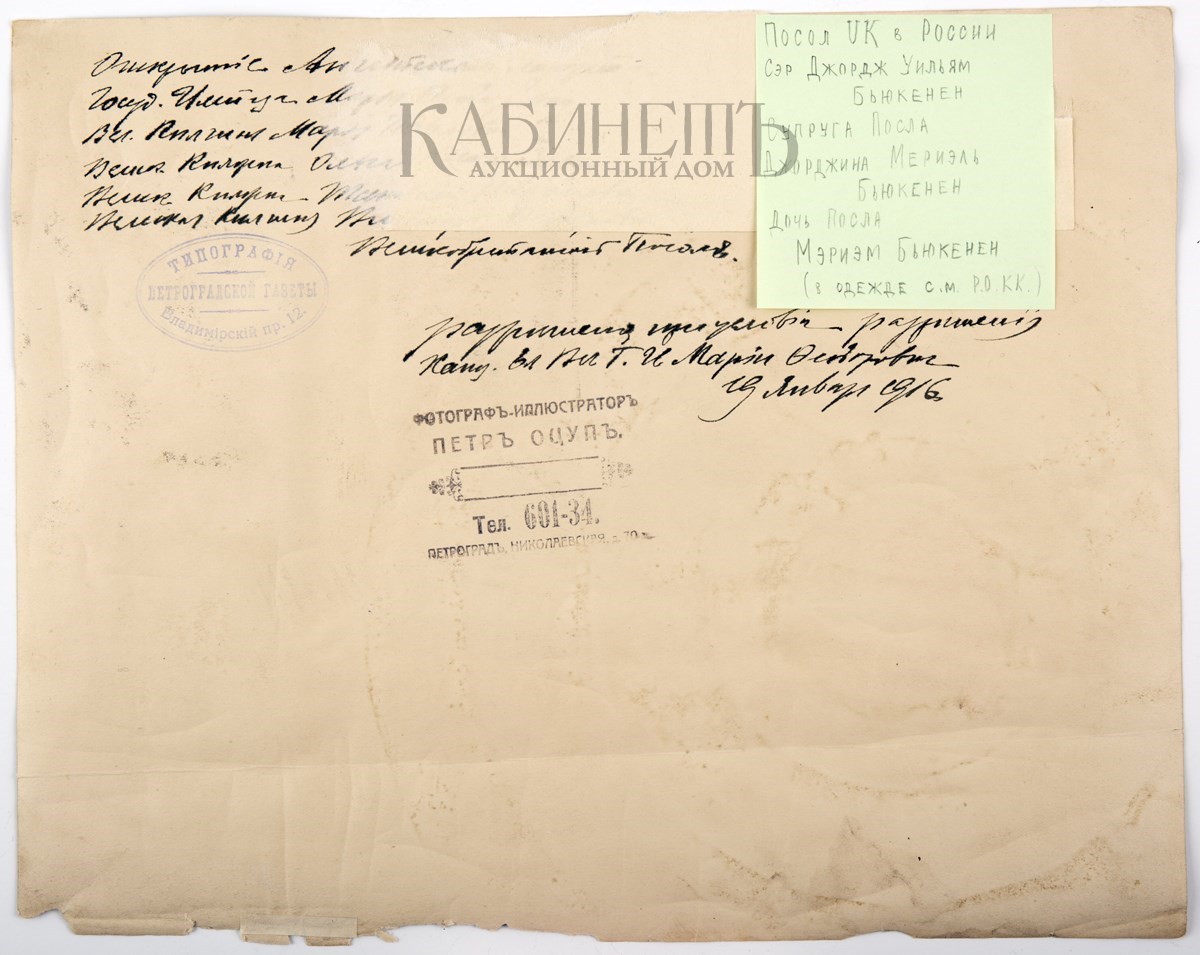 Открытіе
Госуд. Импер.
Вел. Княгиня Марія
Велик Княгиня Ольга
Велик Княжн
Великая Княжна
Великобританскій Посолъ.
КАБИНЕТЪ
АУКЦИОННЫЙ ДОМ
Посол UK в России
Сэр Джордж Уильям
Бьюкенен
Супруга Посла
Джорджина Мериэль
Бьюкенен
Дочь Посла
Мэриэм Бьюкенен
(в одежде с.м. Р.О.КК.)
ТИПОГРАФІЯ
ПЕТРОГРАДСКОЙ ГАЗЕТЫ
Владимірскій пр. 12.
разрѣшенія
Канц. Ея Вел Г. И Маріи Феодоровн
19 Январ 1916
ФОТОГРАФЪ-ИЛЛЮСТРАТОРЪ
ПЕТРЪ ОЦУПЪ.
Тел. 601-34.
ПЕТРОГРАДЪ, НИКОЛАЕВСКАЯ, д. 70